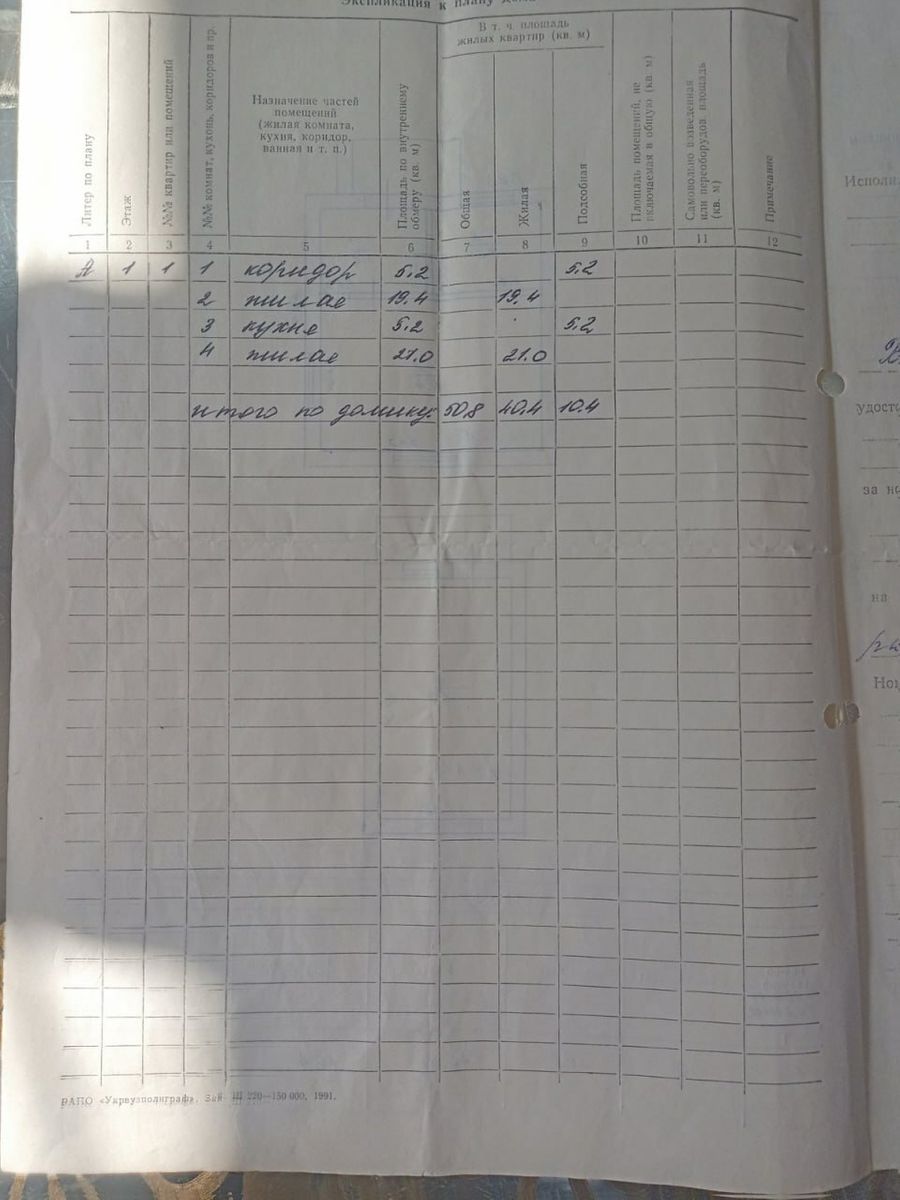 Экспликация к плану дома
Литер по плану
Этаж
№№ квартир или помещений
№№ комнат, кухонь, коридоров и пр.
Назначение частей
помещений
(жилая комната,
кухня, коридор,
ванная и т. п.)
Площадь по внутреннему
обмеру (кв. м)
В т. ч. площадь
жилых квартир (кв. м)
Общая
Жилая
Подсобная
Площадь помещений, не
включаемая в общую (кв. м)
Самовольно возведенная
или переоборудов. площадь
(кв. м)
Примечание
1 2 3 4 5 6 7 8 9 10 11 12
А 1 1 1 коридор 5.2 5.2
2 жилая 19.4 19.4
3 кухня 5.2 5.2
4 жилая 21.0 21.0
итого по домику: 50.8 40.4 10.4
РАПО «Укрвузполиграф». Зак. Ш 220—150 000, 1991.
Исполн
удосто
за но
на